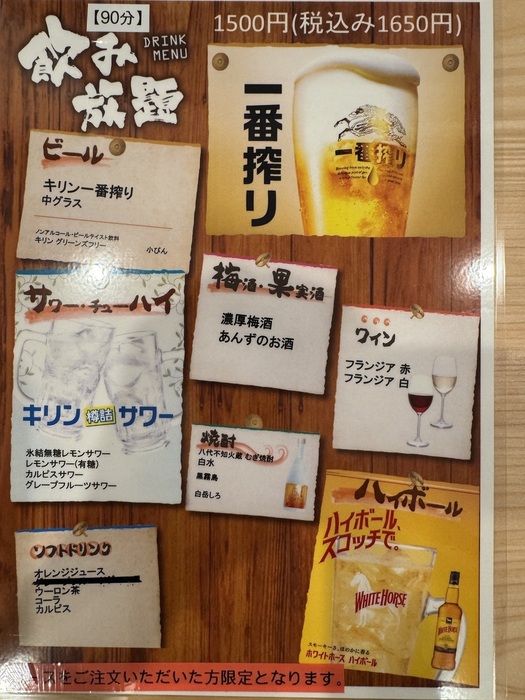 【90分】
飲み
放題
DRINK
MENU
1500円(税込み1650円)
一番搾り
一番搾り
ビール
キリン一番搾り
中グラス
ノンアルコール・ビールテイスト飲料
キリン グリーンズフリー
小びん
サワー・チューハイ
キリン 樽詰 サワー
氷結無糖レモンサワー
レモンサワー(有糖)
カルピスサワー
グレープフルーツサワー
梅酒・果実酒
濃厚梅酒
あんずのお酒
ワイン
フランジア 赤
フランジア 白
焼酎
八代不知火蔵 むぎ焼酎
白水
黒霧島
白岳しろ
ハイボール
ハイボール、
スコッチで。
WHITE HORSE
スモーキーさ、ほのかに香る
ホワイトホース ハイボール
ソフトドリンク
オレンジジュース
ウーロン茶
コーラ
カルピス
スをご注文いただいた方限定となります。